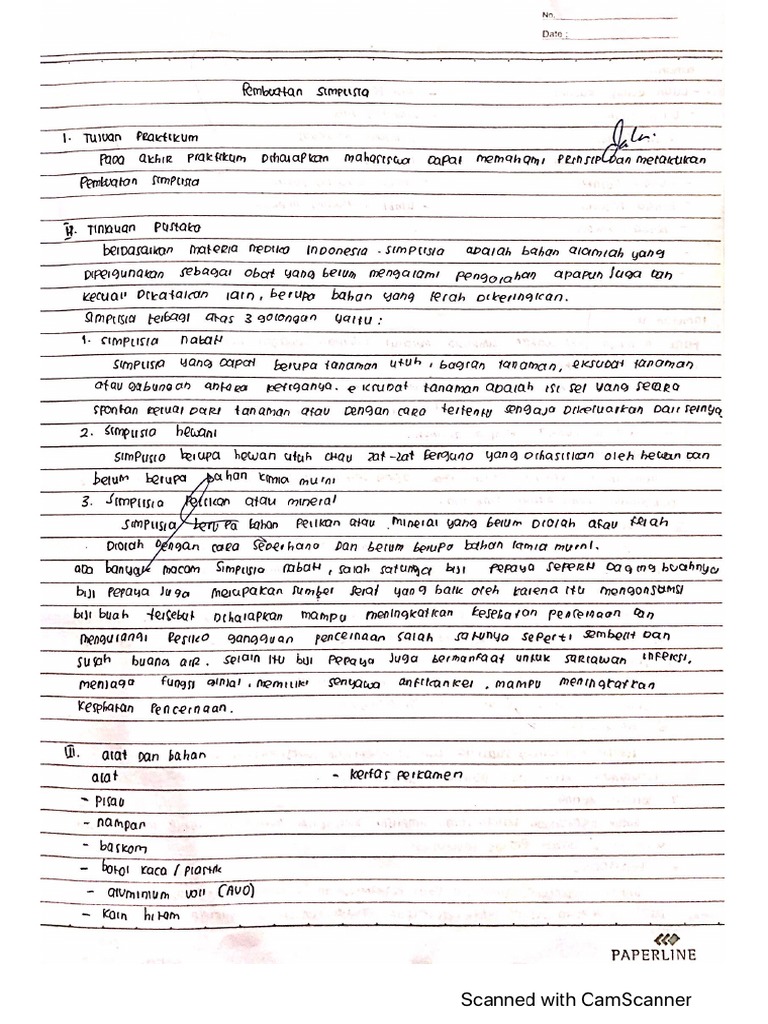 No.
Date :
Pembuatan Simplisia
I. Tujuan Praktikum
Pada akhir praktikum diharapkan mahasiswa dapat memahami prinsip dan melakukan
Pembuatan simplisia
II. Tinjauan Pustaka
berdasarkan materia medika indonesia. simplisia adalah bahan alamiah yang
dipergunakan sebagai obat yang belum mengalami pengolahan apapun juga dan
kecuali dikatakan lain, berupa bahan yang telah dikeringkan.
Simplisia terbagi atas 3 golongan yaitu :
1. simplisia nabati
simplisia yang dapat berupa tanaman utuh, bagian tanaman, eksudat tanaman
atau gabungan antara ketiganya. eksudat tanaman adalah isi sel yang secara
spontan keluar dari tanaman atau dengan cara tertentu sengaja dikeluarkan dari selnya
2. Simplisia hewani
simplisia berupa hewan utuh atau zat-zat berguna yang dihasilkan oleh hewan dan
belum berupa bahan kimia murni
3. Simplisia pelikan atau mineral
Simplisia berupa bahan pelikan atau mineral yang belum diolah atau telah
Diolah dengan cara sederhana dan belum berupa bahan kimia murni.
ada banyak macam simplisia nabati, salah satunya biji pepaya seperti daging buahnya
biji pepaya juga merupakan sumber serat yang baik oleh karena itu mengonsumsi
biji buah tersebut diharapkan mampu meningkatkan kesehatan pencernaan dan
mengurangi resiko gangguan pencernaan salah satunya seperti sembelit dan
susah buang air. selain itu biji pepaya juga bermanfaat untuk sariawan infeksi,
menjaga fungsi ginjal, memiliki senyawa antikanker, mampu meningkatkan
kesehatan pencernaan.
III. alat dan bahan
alat - kertas perkamen
- pisau
- nampan
- baskom
- botol kaca / plastik
- aluminium voil (AVO)
- kain hitam
PAPERLINE
Scanned with CamScanner